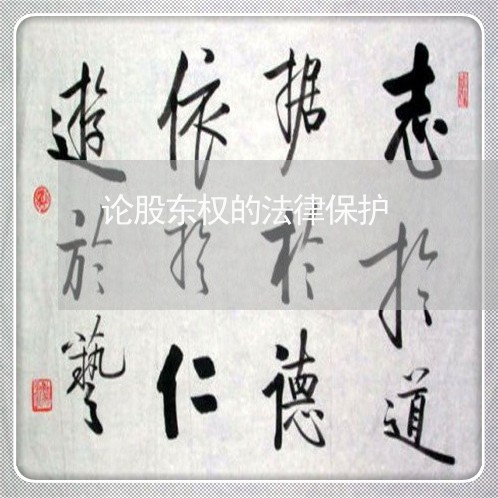 论股东权的法律保护
志於道
据於德
依於仁
遊於藝